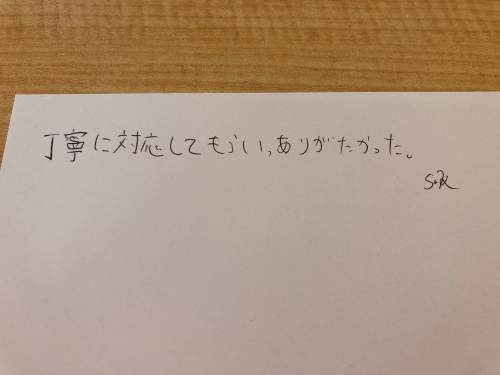 丁寧に対応してもらい、ありがたかった。